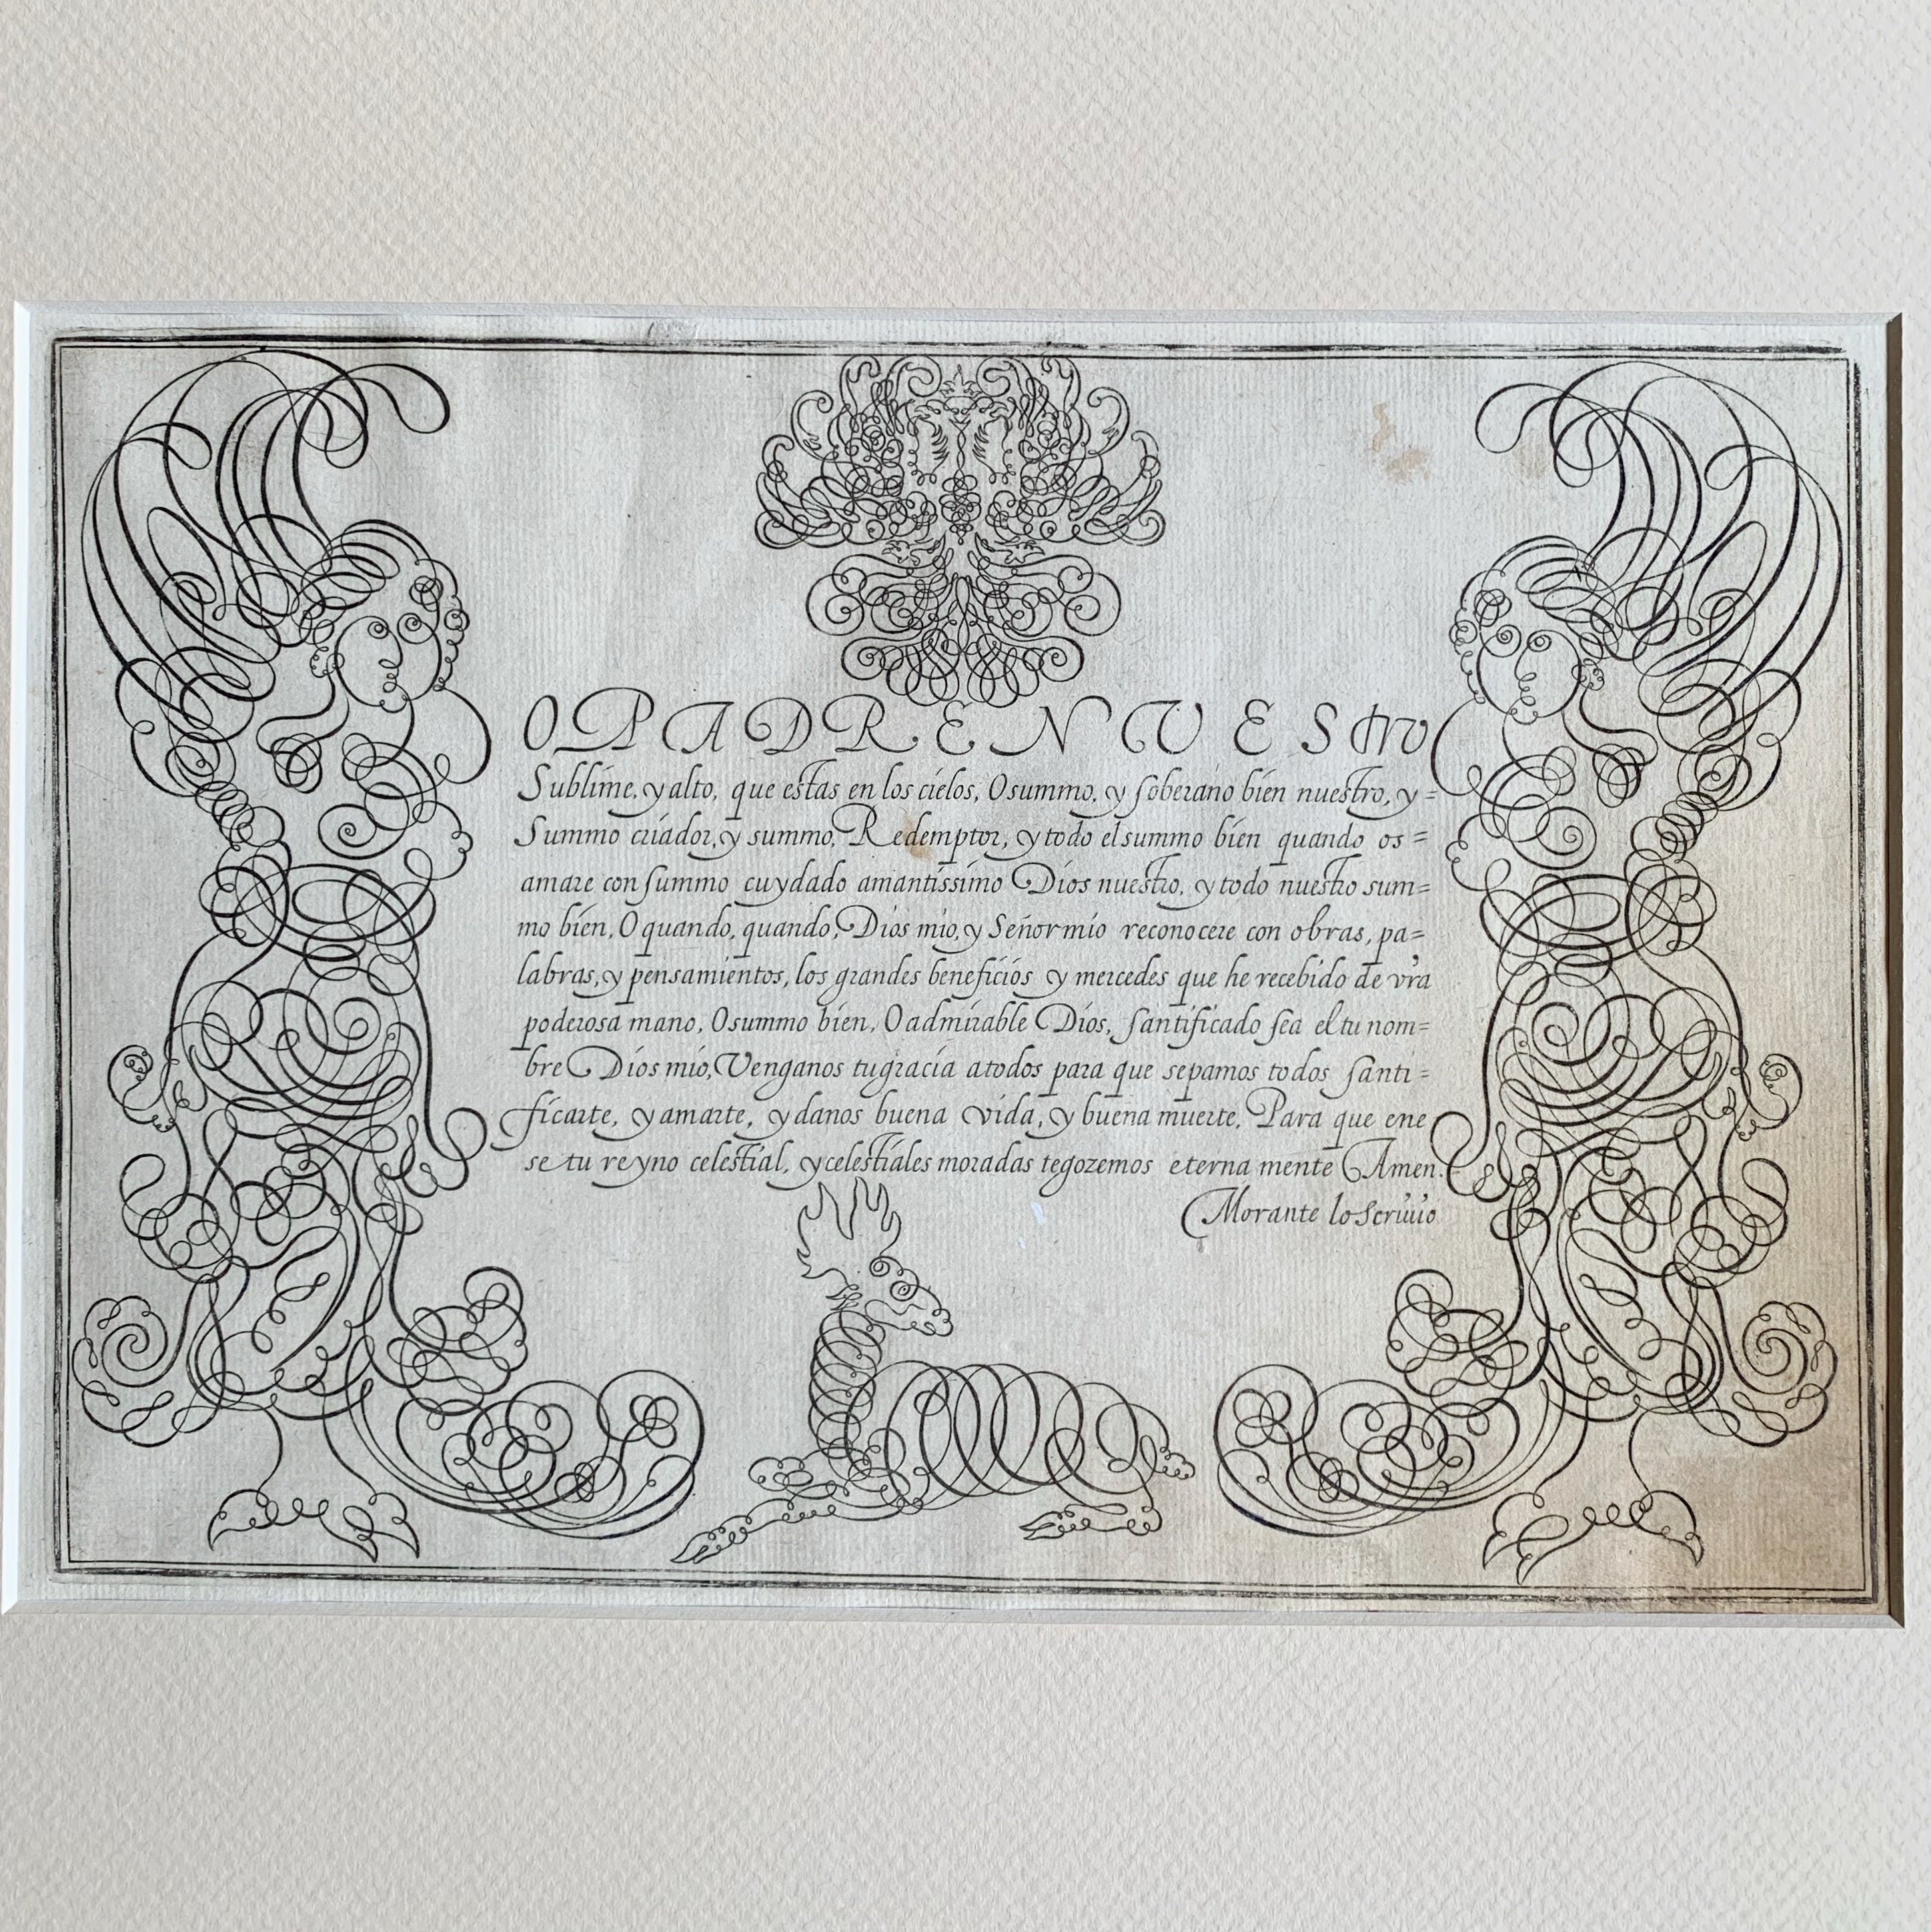 O PADRE NVEStro
Sublime, y alto, que estas en los cielos, O summo, y soberano bien nuestro, y=
Summo criador, y summo, Redemptor, y todo el summo bien quando os=
amare con summo cuydado amantissimo Dios nuestro, y todo nuestro sum=
mo bien, O quando, quando, Dios mio, y Señor mio reconocere con obras, pa=
labras, y pensamientos, los grandes beneficios y mercedes que he recebido de vra
poderosa mano, O summo bien, O admirable Dios, santificado sea el tu nom=
bre Dios mio, Venganos tu gracia a todos para que sepamos todos santi=
ficarte, y amarte, y danos buena vida, y buena muerte, Para que ene
se tu reyno celestial, y celestiales moradas te gozemos eterna mente Amen.
Morante lo scriuio